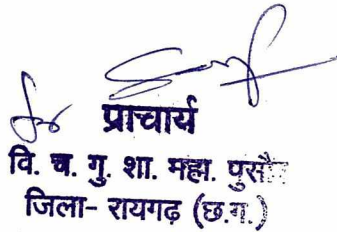 प्राचार्य
वि. च. गु. शा. महा.
जिला- रायगढ़ (छ.ग.)